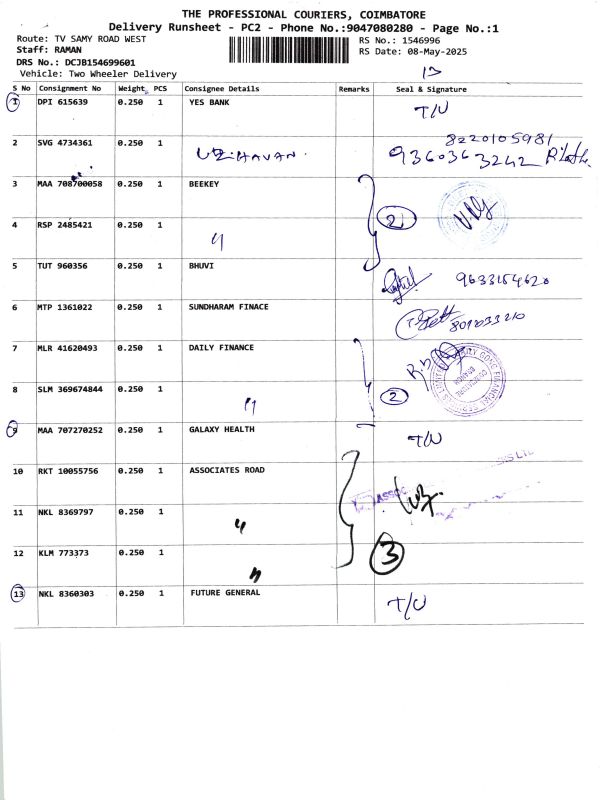 THE PROFESSIONAL COURIERS, COIMBATORE
Delivery Runsheet - PC2 - Phone No.:9047080280 - Page No.:1
Route: TV SAMY ROAD WEST RS No.: 1546996
Staff: RAMAN RS Date: 08-May-2025
DRS No.: DCJB154699601
Vehicle: Two Wheeler Delivery 13
S No Consignment No Weight PCS Consignee Details Remarks Seal & Signature
1 DPI 615639 0.250 1 YES BANK T/U
2 SVG 4734361 0.250 1 8220105981
UZHAVAN. 9360363242
3 MAA 708700058 0.250 1 BEEKEY 2
4 RSP 2485421 0.250 1
〃
5 TUT 960356 0.250 1 BHUVI
9633154620
6 MTP 1361022 0.250 1 SUNDHARAM FINACE
7 MLR 41620493 0.250 1 DAILY FINANCE
8 SLM 369674844 0.250 1 2
〃
9 MAA 707270252 0.250 1 GALAXY HEALTH T/U
10 RKT 10055756 0.250 1 ASSOCIATES ROAD
11 NKL 8369797 0.250 1
〃
12 KLM 773373 0.250 1 3
〃
13 NKL 8360303 0.250 1 FUTURE GENERAL T/U